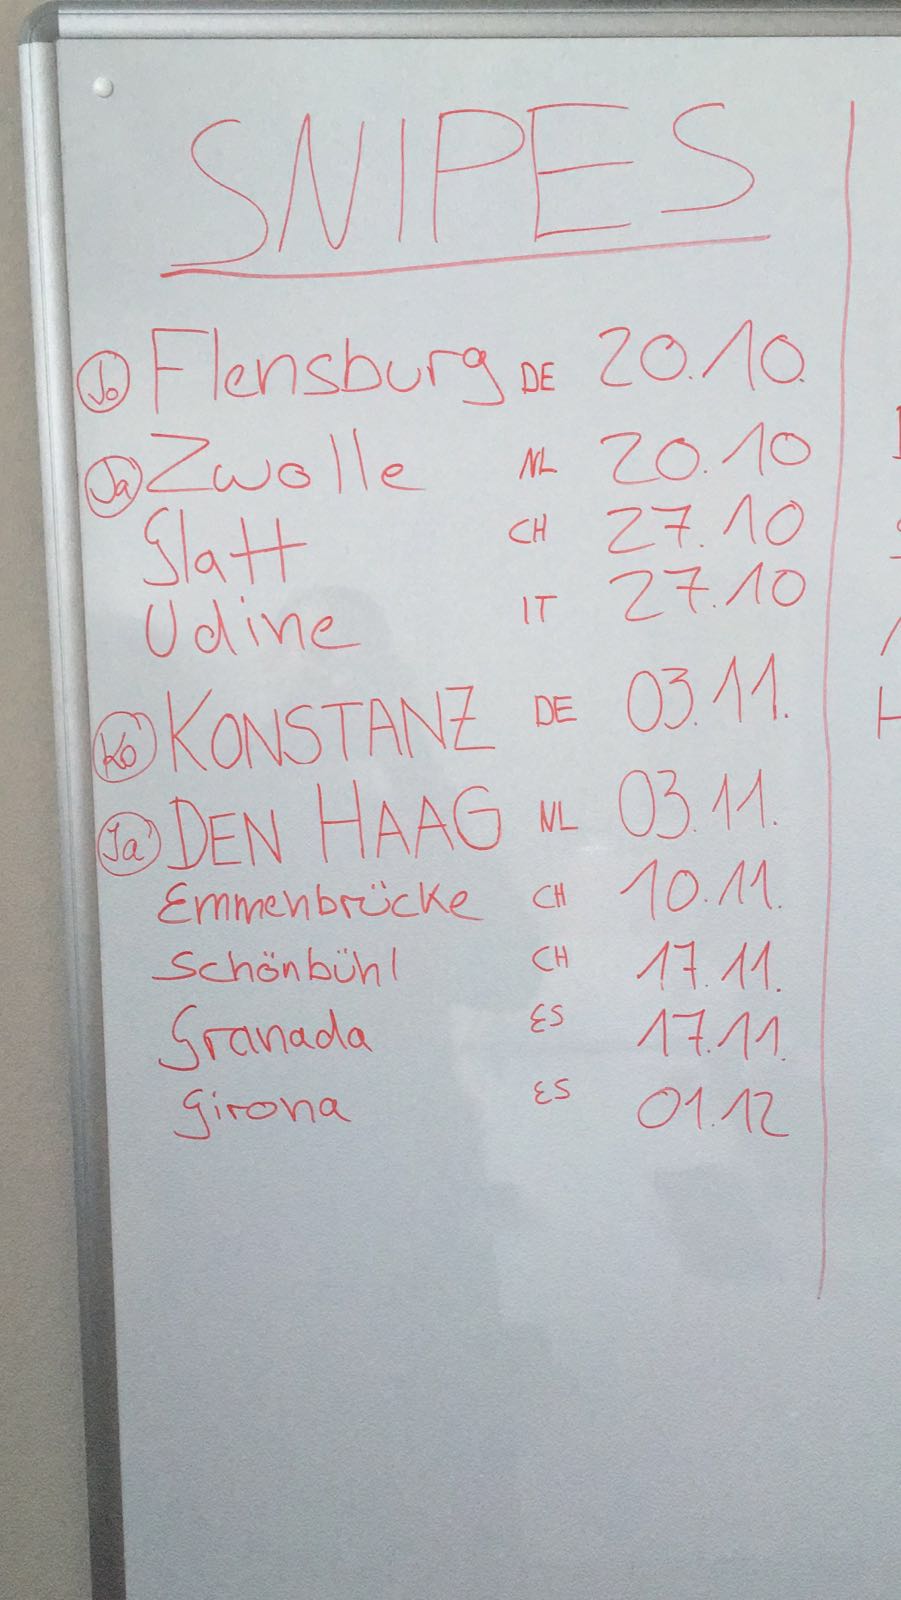 SNIPES
Jo Flensburg DE 20.10.
Ja Zwolle NL 20.10
Glatt CH 27.10
Udine IT 27.10
Ko KONSTANZ DE 03.11.
Ja DEN HAAG NL 03.11.
Emmenbrücke CH 10.11.
Schönbühl CH 17.11.
Granada ES 17.11.
Girona ES 01.12